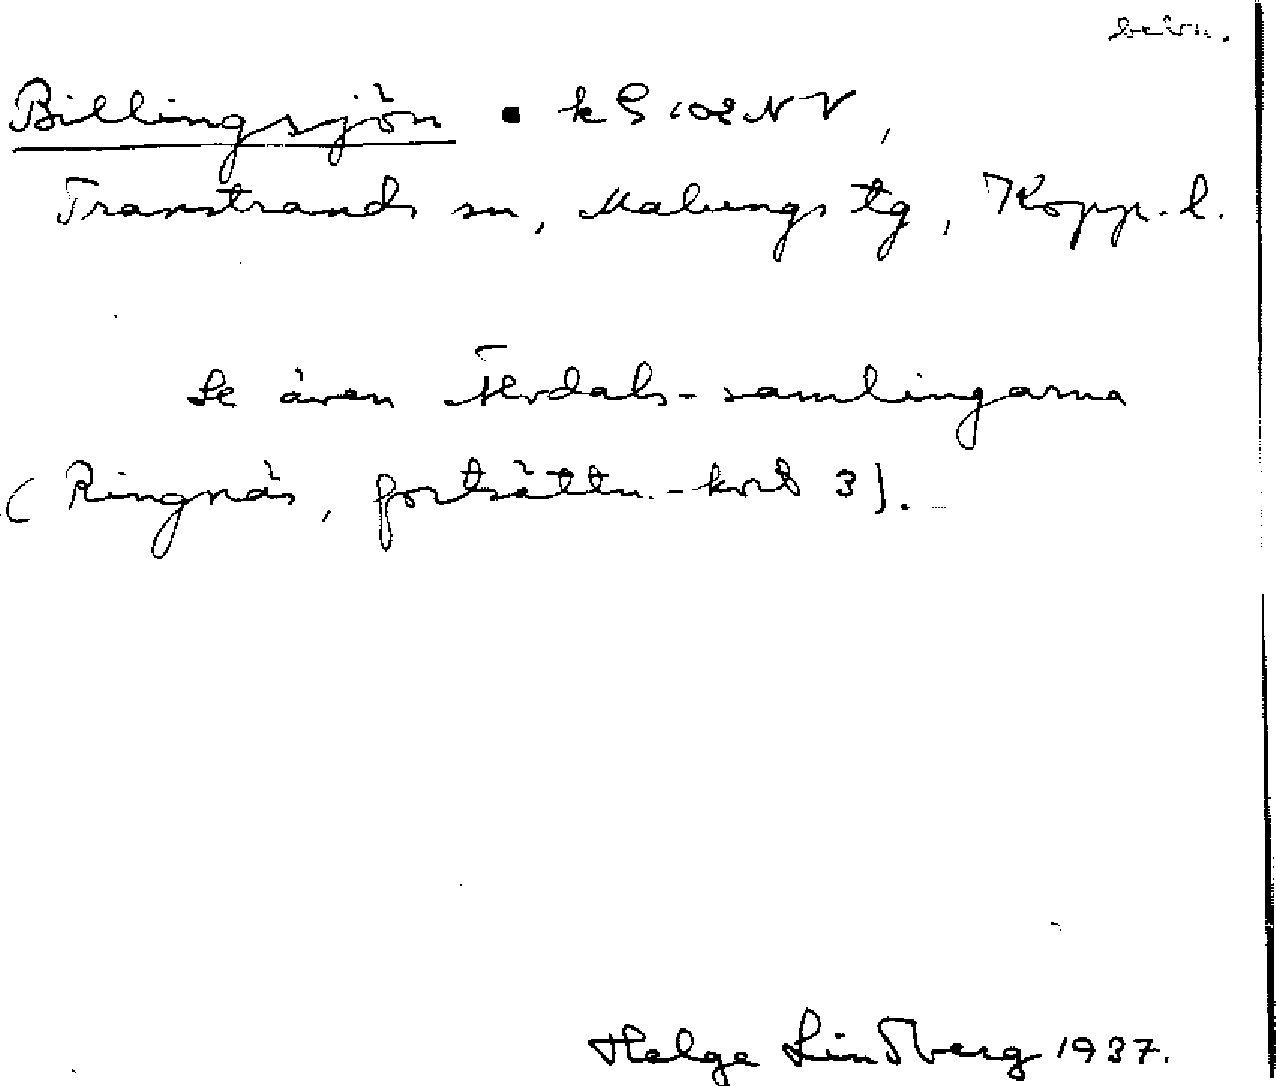 bevn.
Billingsjön • k G 102 NV,
Transtrands sn, Malungs tg, Kopp. l.
Se även Älvdals-samlingarna
(Ringnäs, fortsättn.-kort 3).
Helge Lindberg 1937.